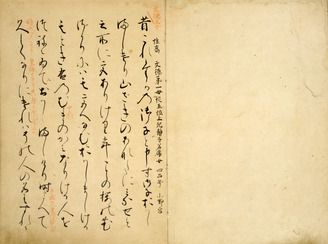 惟喬 文徳第一母従五位上紀静子名虎女 四品号 小野宮
昔これたかの御子と申すみこおはし
ましけり山さきのあなたにみなせと
いふ所に宮ありけり年ことのさくらの花
さかりにはその宮へなむおはしましける
むまのかみなりける人を
つねにゐておはしましけり時世へて
久しくなりにけれはその人の名